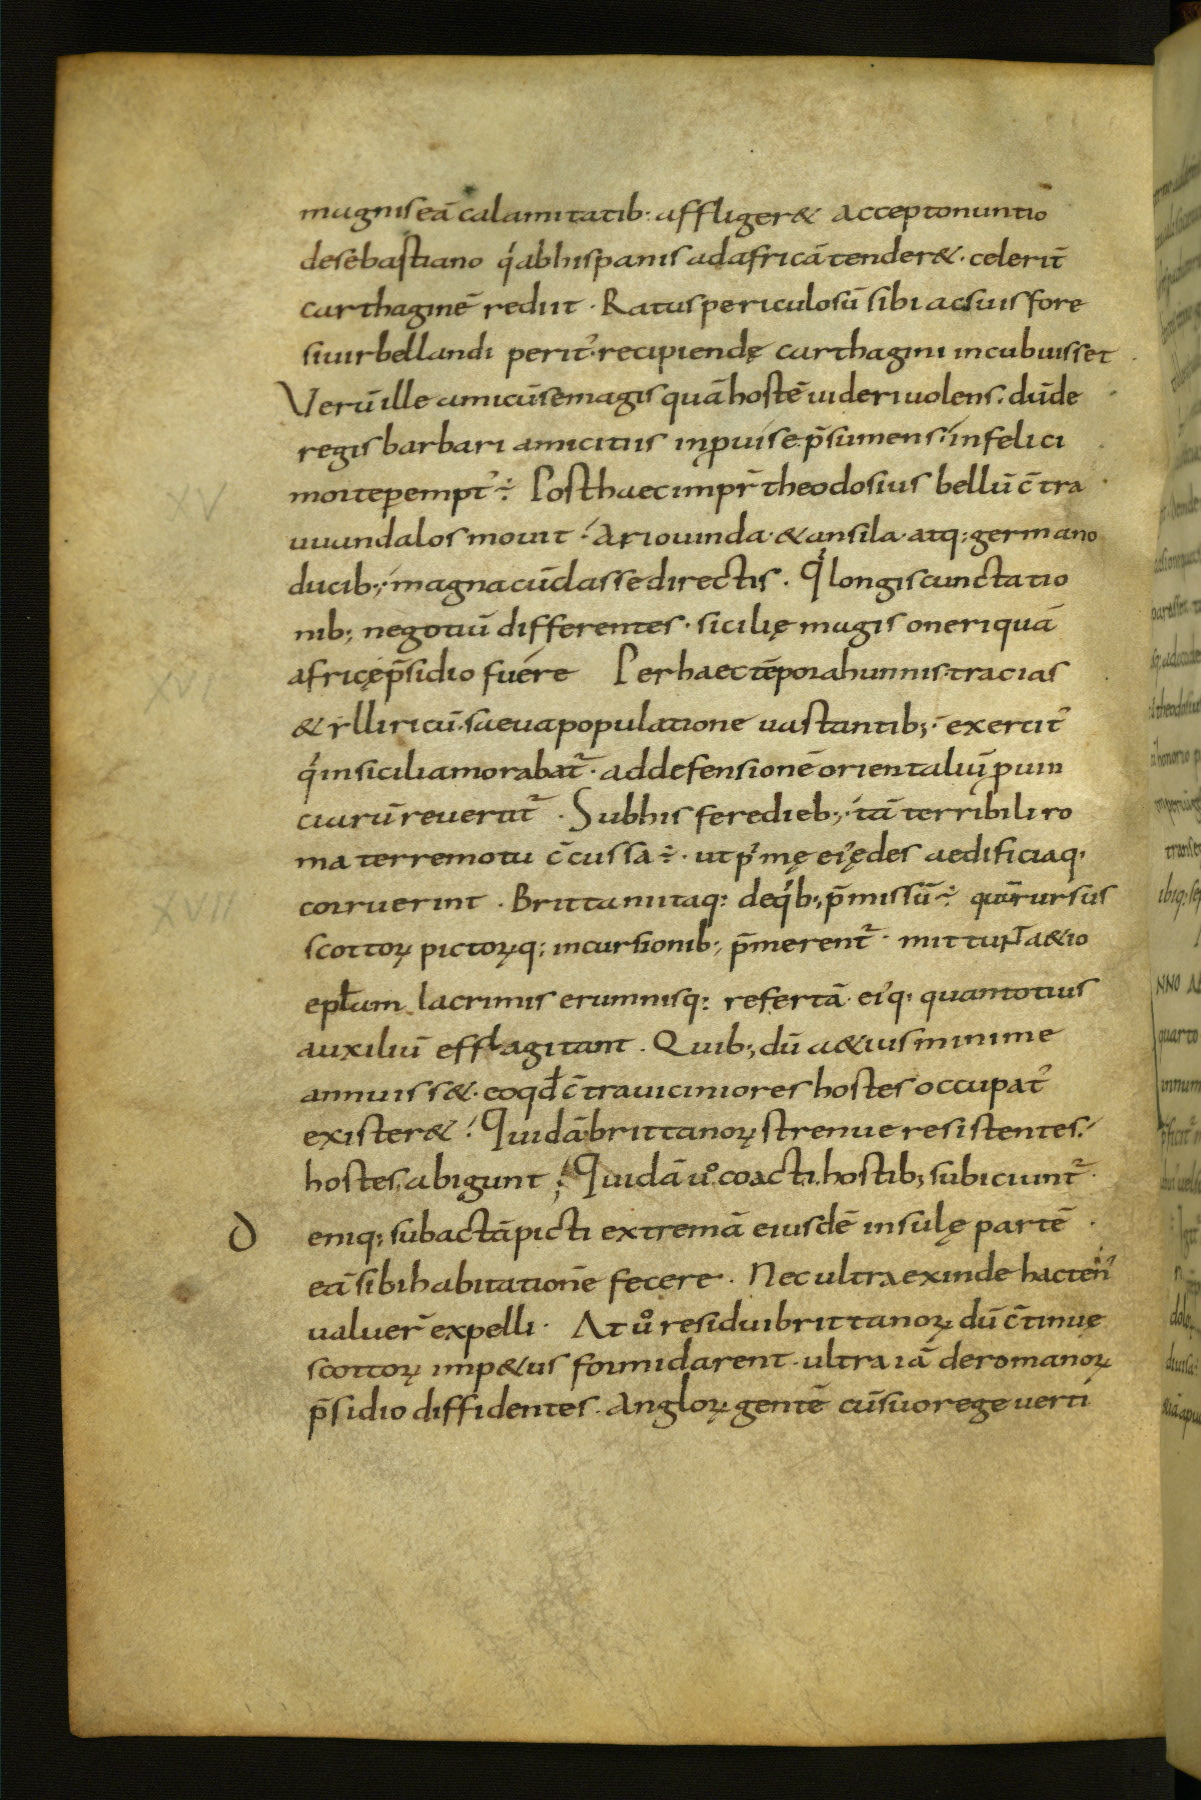 magnis eā calamitatib: affliger& accepto nuntio
de sebastiano q́ ab hispanis ad africā tender&· celerit̄
carthaginē rediit · Ratus periculosū sibi ac suis fore
si uir bellandi perit᾿· recipiendę carthagini incubuisset
Verū ille amicū se magis quā hostē uideri uolens. dū de
regis barbari amicitiis inprouise p̄sumens: infelici
XV
morte perempt᾿ ÷ Post haec impr̄ theodosius bellū c̄tra
uuandalos mouit · Ariouinda· & ansila· atq: germano
ducib; magna cū classe directis. Qí longis cunctatio
nib; negotiū differentes· sicilię magis oneri quā
XVI
africę p̄sidio fuere Per haec tēpora hunnis tracias
& ylliricū· saeua populatione uastantib;· exercit᾿
q́ in sicilia morabat᷑· ad defensionē orientaliū prouin
ciarū reuertit᷑ · Sub his fere dieb; tā terribili ro
ma terremotu c̄cussa ÷ · ut plurimę ei᾿ ędes aedificiaq·
XVII
corruerint · Brittanii taq: de q́b; p̄missū ÷ quū rursus
scottoꝝ pictoꝝq; incursionib; p̄merent᷑· mittunt a&io
eplam lacrimis erumnisq: refertā· ei᾿q· quantotius
auxiliū efflagitant . Quib; dū a&ius minime
annuiss&· eo qd̄ c̄tra uiciniores hostes occupat᾿
exister& · Quidā brittanoꝝ strenue resistentes·
hostes abigunt ; Quidā uͦ coacti hostib; subiciunt᷑·
D eniq: subactā picti extremā eiusdē insulę partē ·
eā sibi habitationē fecere · Nec ultra exinde hacten᾿
ualuer̄ expelli · At uͦ residui brittanoꝝ dū c̄tinuę
scottoꝝ imp&us formidarent· ultra iā de romanoꝝ
p̄sidio diffidentes. Angloꝝ gentē cū suo rege uerti